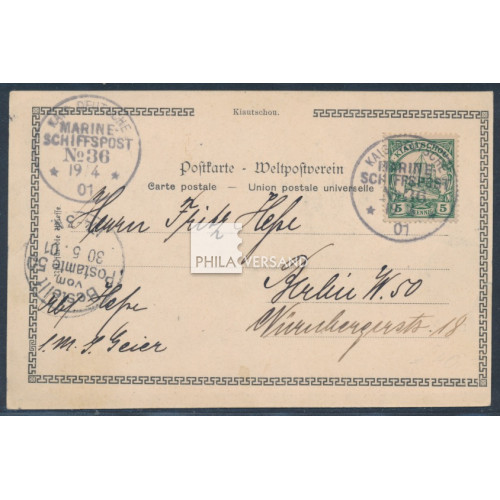 Kiautschou.
KAIS. DEUTSCHE
MARINE-
SCHIFFSPOST
No 36
19/4
01
KAIS. DEUTSCHE
MARINE-
SCHIFFSPOST
36
01
KIAUTSCHOU
5
5
PFENNIG
Postkarte - Weltpostverein
Carte postale - Union postale universelle
Herrn Fritz Hefse
PHILA VERSAND
Berlin W. 50
Nürnbergerstr. 18
Bestellt
vom
Postamte
30 5 01
50
Abs. Hefse
S.M.S. Geier